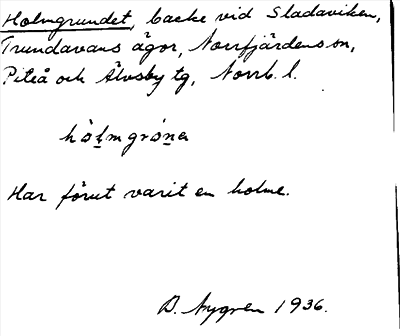 Holmgrundet, backe vid Sladaviken,
Trundavans ägor, Norrfjärdens sn,
Piteå och Älvsby tg, Norrb. l.
hòlmgrónɐ
Har förut varit en holme.
D. Nygren 1936.